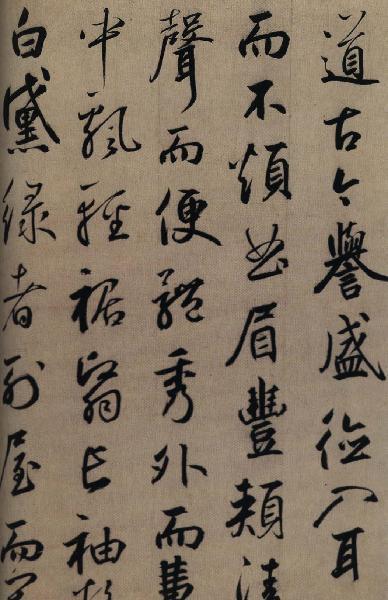 道古今譽盛德入耳
而不煩曲眉豐頰清
聲而便體秀外而惠
中飄輕裾翳長袖
白黛綠者列屋而